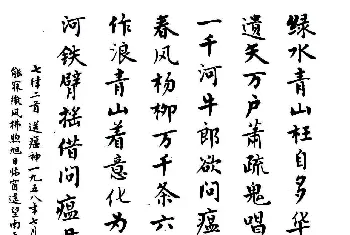 绿水青山枉自多华
遗矢万户萧疏鬼唱
一千河牛郎欲问瘟
春风杨柳万千条六
作浪青山着意化为
河铁臂摇借问瘟
七律二首 送瘟神一九五八年七月
能寐微风拂煦旭日临窗遥望南